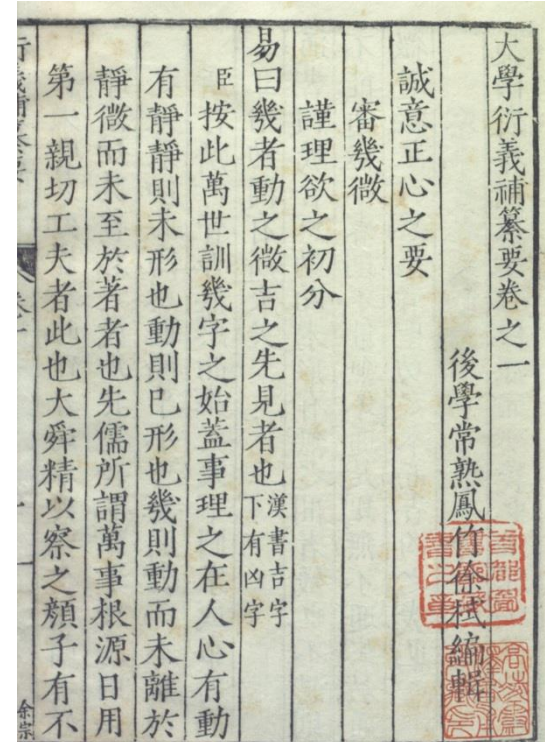 大學衍義補纂要卷之一
後學常熟鳳竹徐栻編輯
誠意正心之要
審幾微
謹理欲之初分
易曰幾者動之微吉之先見者也漢書吉字下有凶字
臣按此萬世訓幾字之始蓋事理之在人心有動
有靜靜則未形也動則已形也幾則動而未離於
靜微而未至於著者也先儒所謂萬事根源日用
第一親切工夫者此也大舜精以察之顏子有不